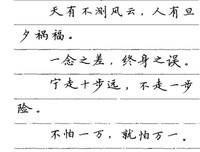 天有不测风云，人有旦
夕祸福。
一念之差，终身之误。
宁走十步远，不走一步
险。
不怕一万，就怕万一。